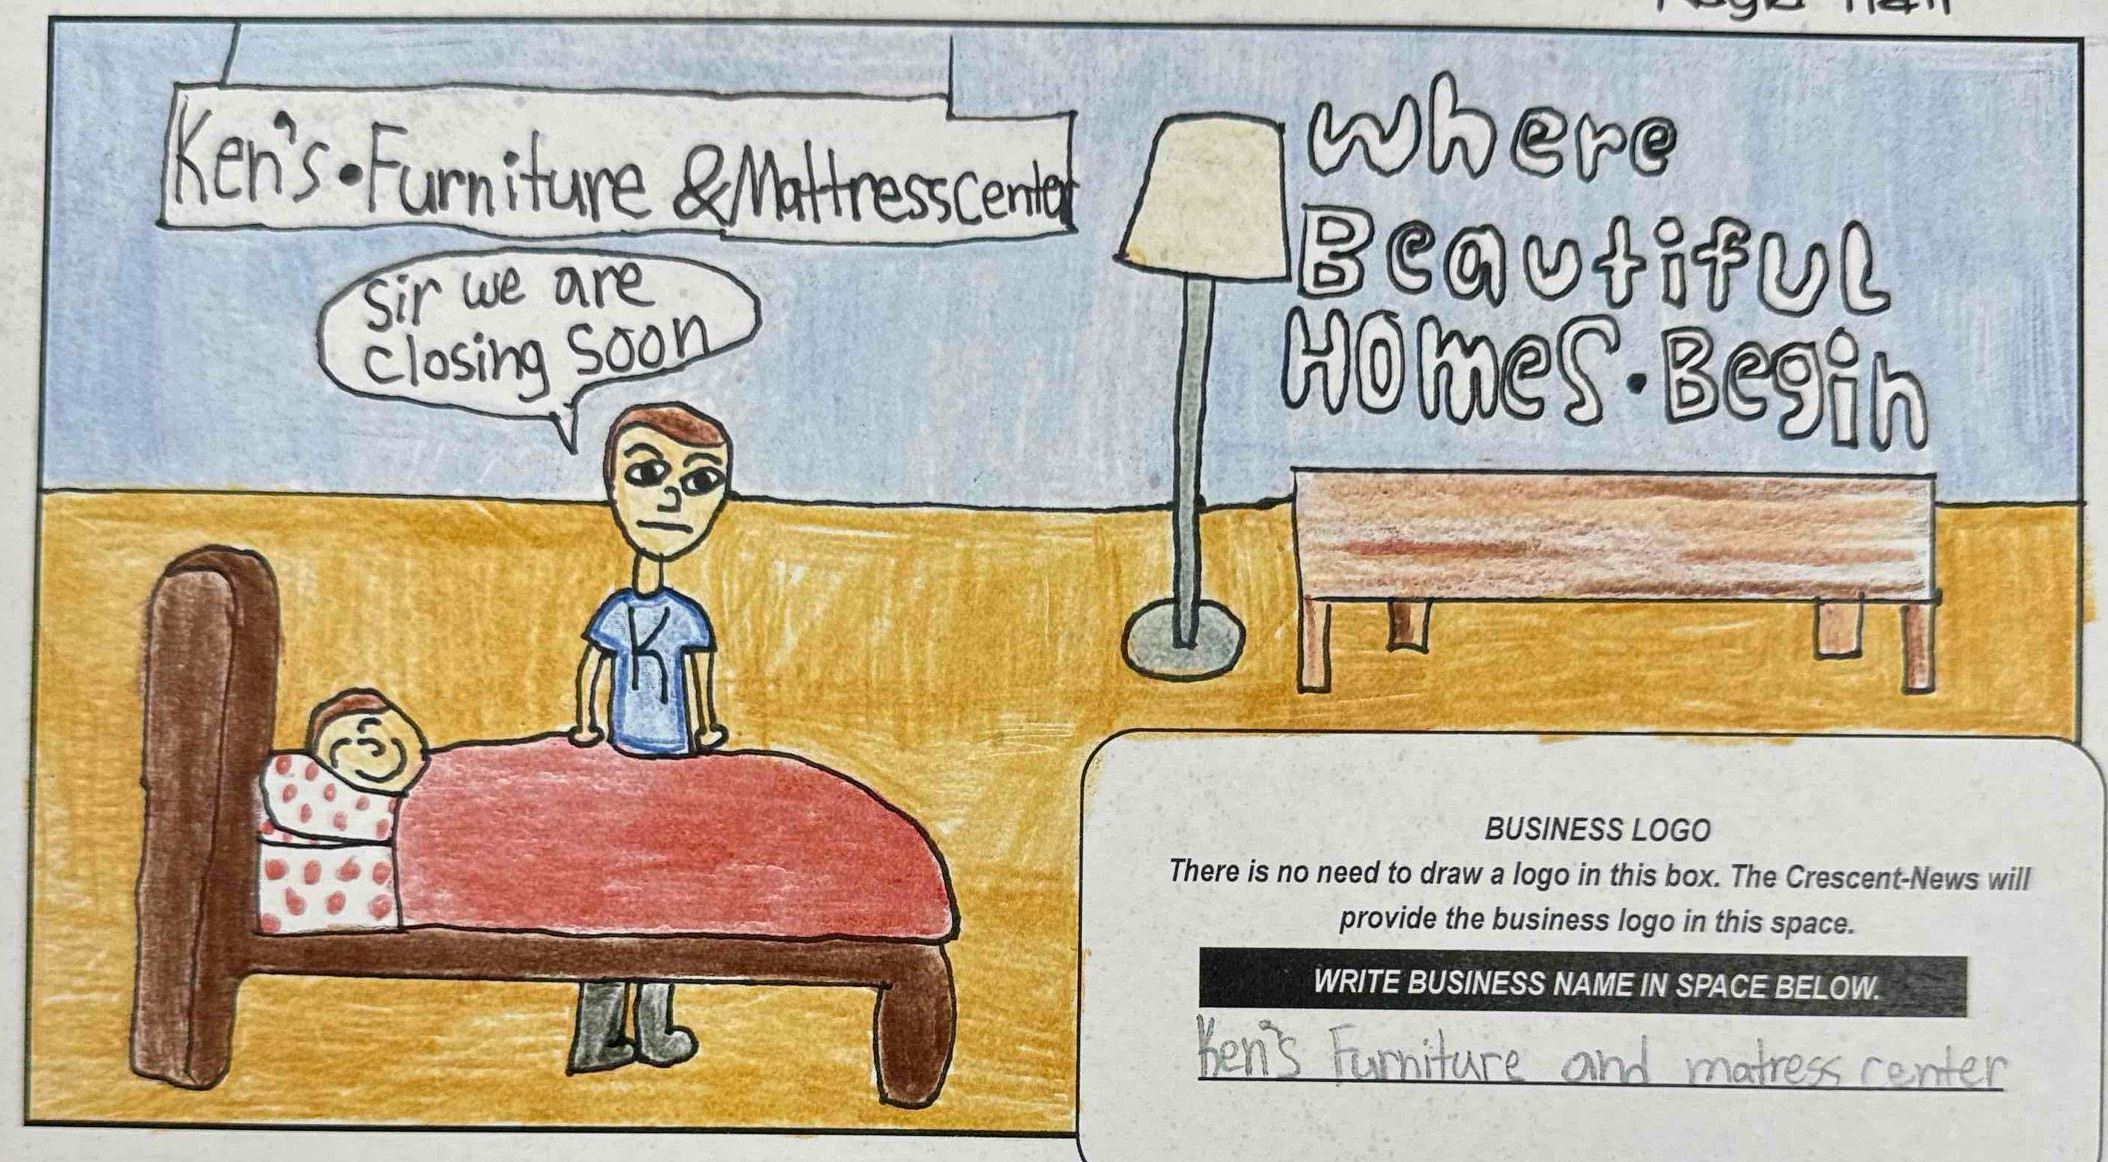 Ken's • Furniture & Mattress center
sir we are
closing soon
Where
Beautiful
Homes • Begin
BUSINESS LOGO
There is no need to draw a logo in this box. The Crescent-News will
provide the business logo in this space.
WRITE BUSINESS NAME IN SPACE BELOW.
Ken's Furniture and matress center